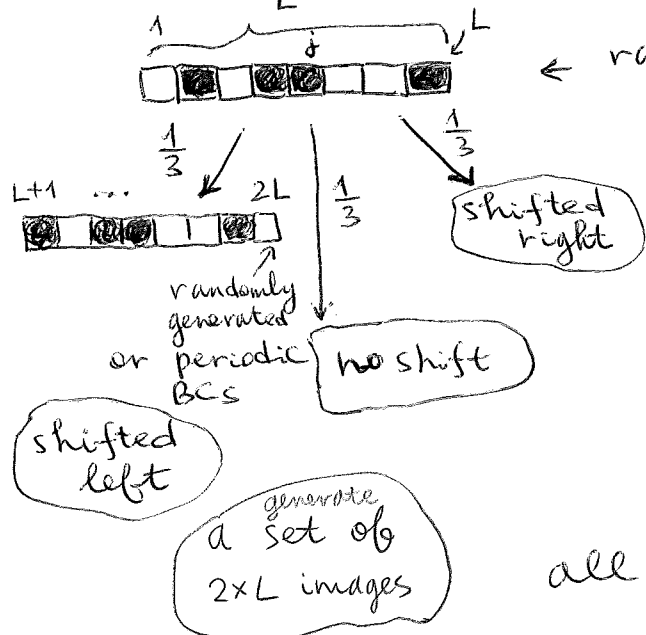 L
1
j
L
← ra
1/3
1/3
1/3
L+1 ... 2L
shifted
right
randomly
generated
or periodic
BCs
no shift
shifted
left
generate
a set of
2×L images
all